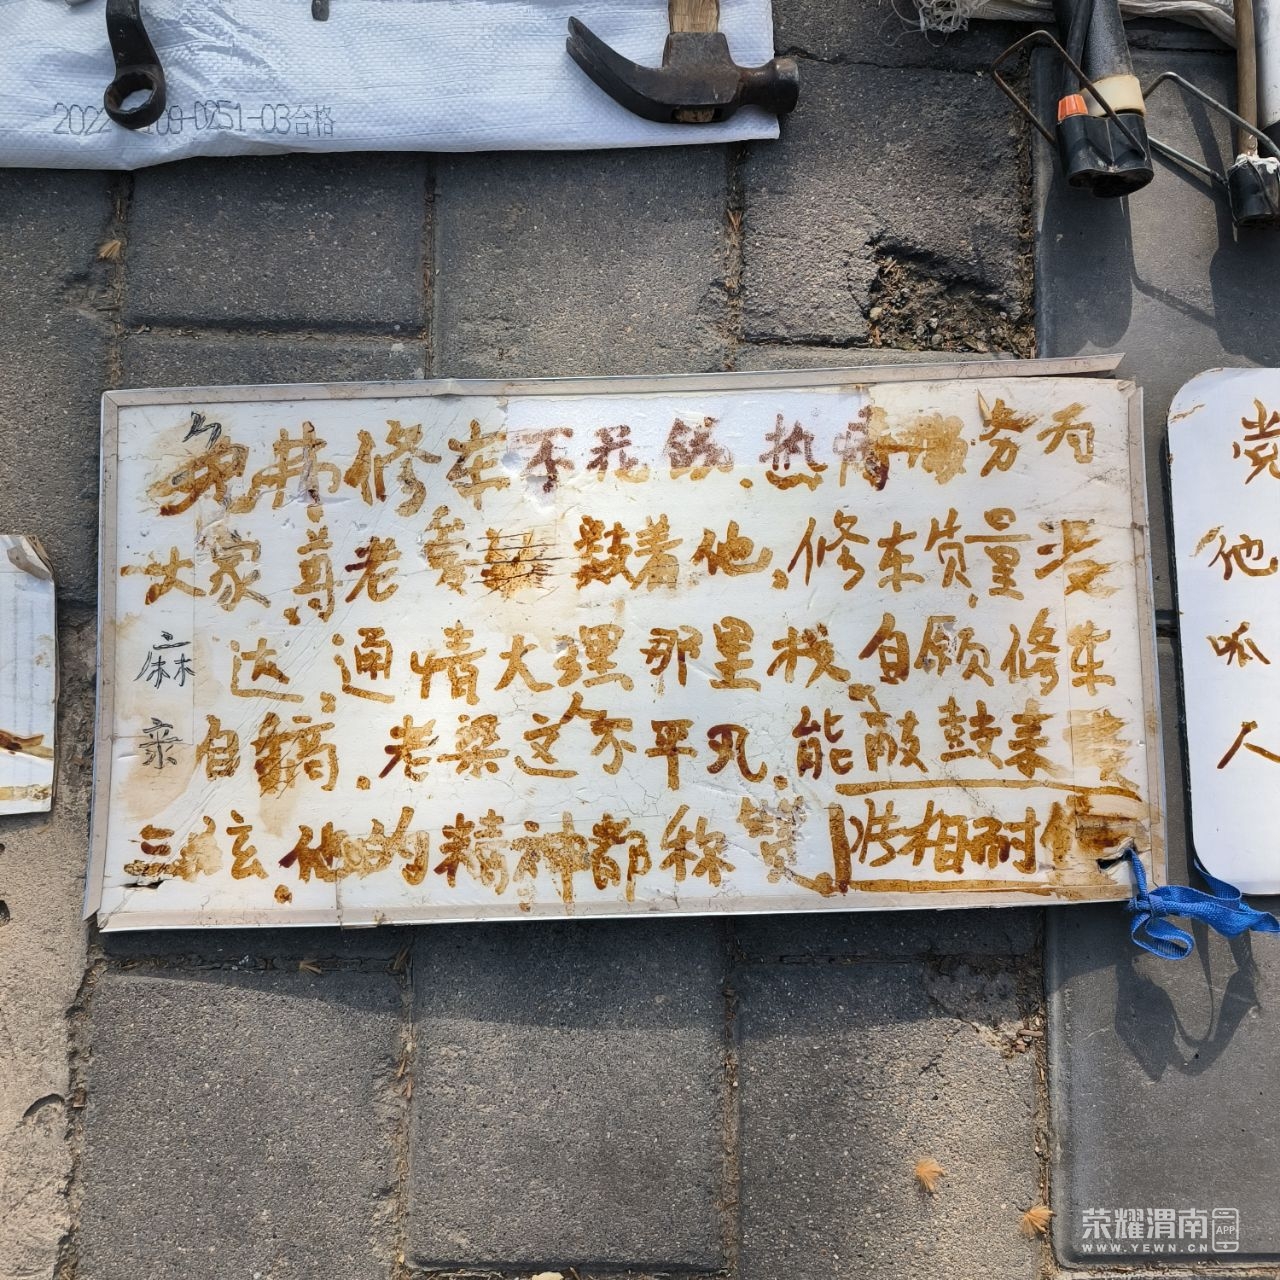 03合格
免费修车不花钱.热情服务为
大家.尊老爱 鼓着他.修车质量没
麻达.通情大理那里找.自顾修车
亲自搞.老梁这个不平凡.能敲鼓来
三弦.他的精神都称赞 洪相耐
党
他
呱
人
荣耀渭南APP
WWW.YEWN.CN